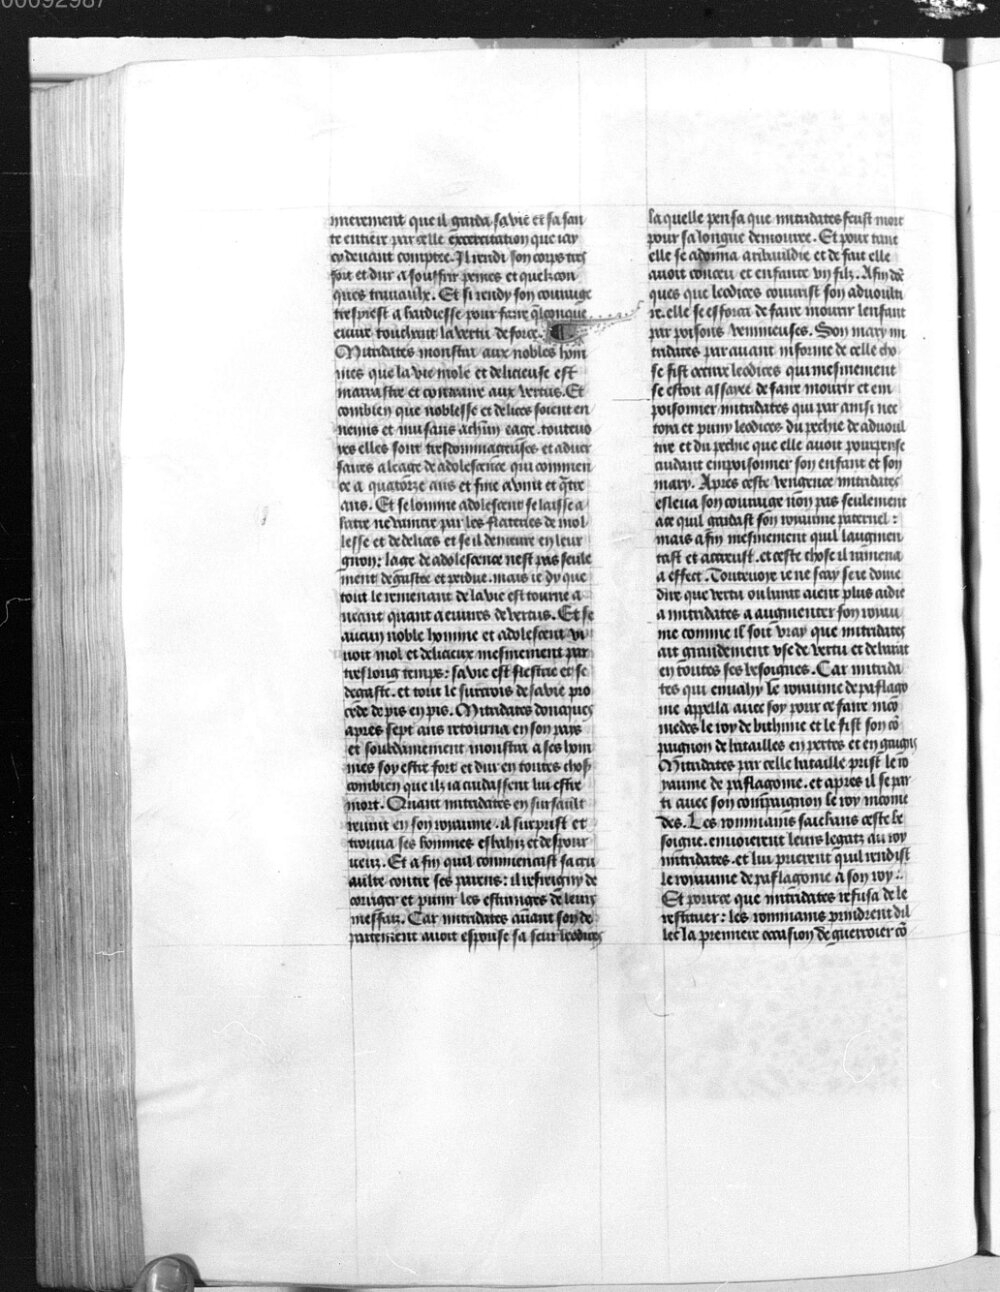 00092987
mierement que il garda sa vie et sa san
te entiere par celle excercitation que iay
cy deuant comptee. Il rendi son corps tres
fort et dur a souffrir peines et quelzcon
ques trauaulx. Et si rendy son couraige
tresprest a hardiesse pour faire qlconque
euure touchant la vertu de force.
Mitridates monstra aux nobles hom
mes que la vie mole et delicieuse est
marrastre et contraire aux vertus. Et
combien que noblesse et delices soient en
nemis et nuisans a chun eage. touteuo
ies elles sont tresdommageuses et aduer
saires a leage de adolescence qui commen
ce a quatorze ans et fine a vint et qtre
ans. Et se lomme adolescent se laisse a
batre ne vaincre par les flateries de mol
lesse et de delices et se il demeure en leur
giron: lage de adolescence nest pas seule
ment degastee et perdue. mais ie dy que
tout le remenant de la vie est tourne a
neant quant a euures de vertus. Et se
aucun noble homme et adolescent vi
uoit mol et delicieux mesmement par
tres long temps: sa vie est flestrie et se
degaste. et tout le surcrois de sa vie pro
cede de pis en pis. Mitridates doncques
apres sept ans retourna en son pays
et soubdainement monstra a ses hom
mes soy estre fort et dur en toutes chos
combien que ilz ia cuidassent lui estre
mort. Quant mitridates en sursault
reuint en son royaume. il surprist et
trouua ses hommes esbahiz et despour
ueuz. Et a fin quil commencast sa cru
aulte contre ses parens: il resoigny de
corriger et punir les estranges de leurs
meffaiz. Car mitridates auant son de
partement auoit espouse sa seur leodices
la quelle pensa que mitridates feust mort
pour sa longue demouree. Et pour tant
elle se adonna a ribauldie et de fait elle
auoit conceu et enfante vn filz. Afin dec
ques que leodices couurist son aduoulti
re. elle se efforca de faire mourir lenfant
par poisons venimeuses. Son mary mi
tridates par auant informe de celle cho
se fist occire leodices qui mesmement
se estoit assayee de faire mourir et em
poisonner mitridates qui par ainsi nec
toya et puny leodices du pechie de aduoul
tire et du pechie que elle auoit pourpense
cuidant empoisonner son enfant et son
mary. Apres ceste vengence mitridates
esleua son couraige non pas seulement
a ce quil gardast son royaume paternel:
mais a fin mesmement quil laugmen
tast et accreust. et ceste chose il ramena
a effect. Touteuoye ie ne scay se ie doiue
dire que vertu ou barat aient plus aidie
a mitridates a augmenter son royau
me comme il soit vray que mitridates
ait grandement vse de vertu et de barat
en toutes ses besoignes. Car mitrida
tes qui enuahy le royaume de paflago
nie appella auec soy pour ce faire nico
medes le roy de bithinie et le fist son co
paignon de batailles en pertes et en gaigns
Mitridates par celle bataille prist le ro
yaume de paflagonie. et apres il se par
ti auec son compaignon le roy nicome
des. Les rommains saichans ceste be
soigne. enuoierent leurs legatz au roy
mitridates. et lui prierent quil rendist
le royaume de paflagonie a son roy:.
Et pource que mitridates refusa de le
restituer: les rommains prindrent dil
lec la premiere occasion de guerroier co